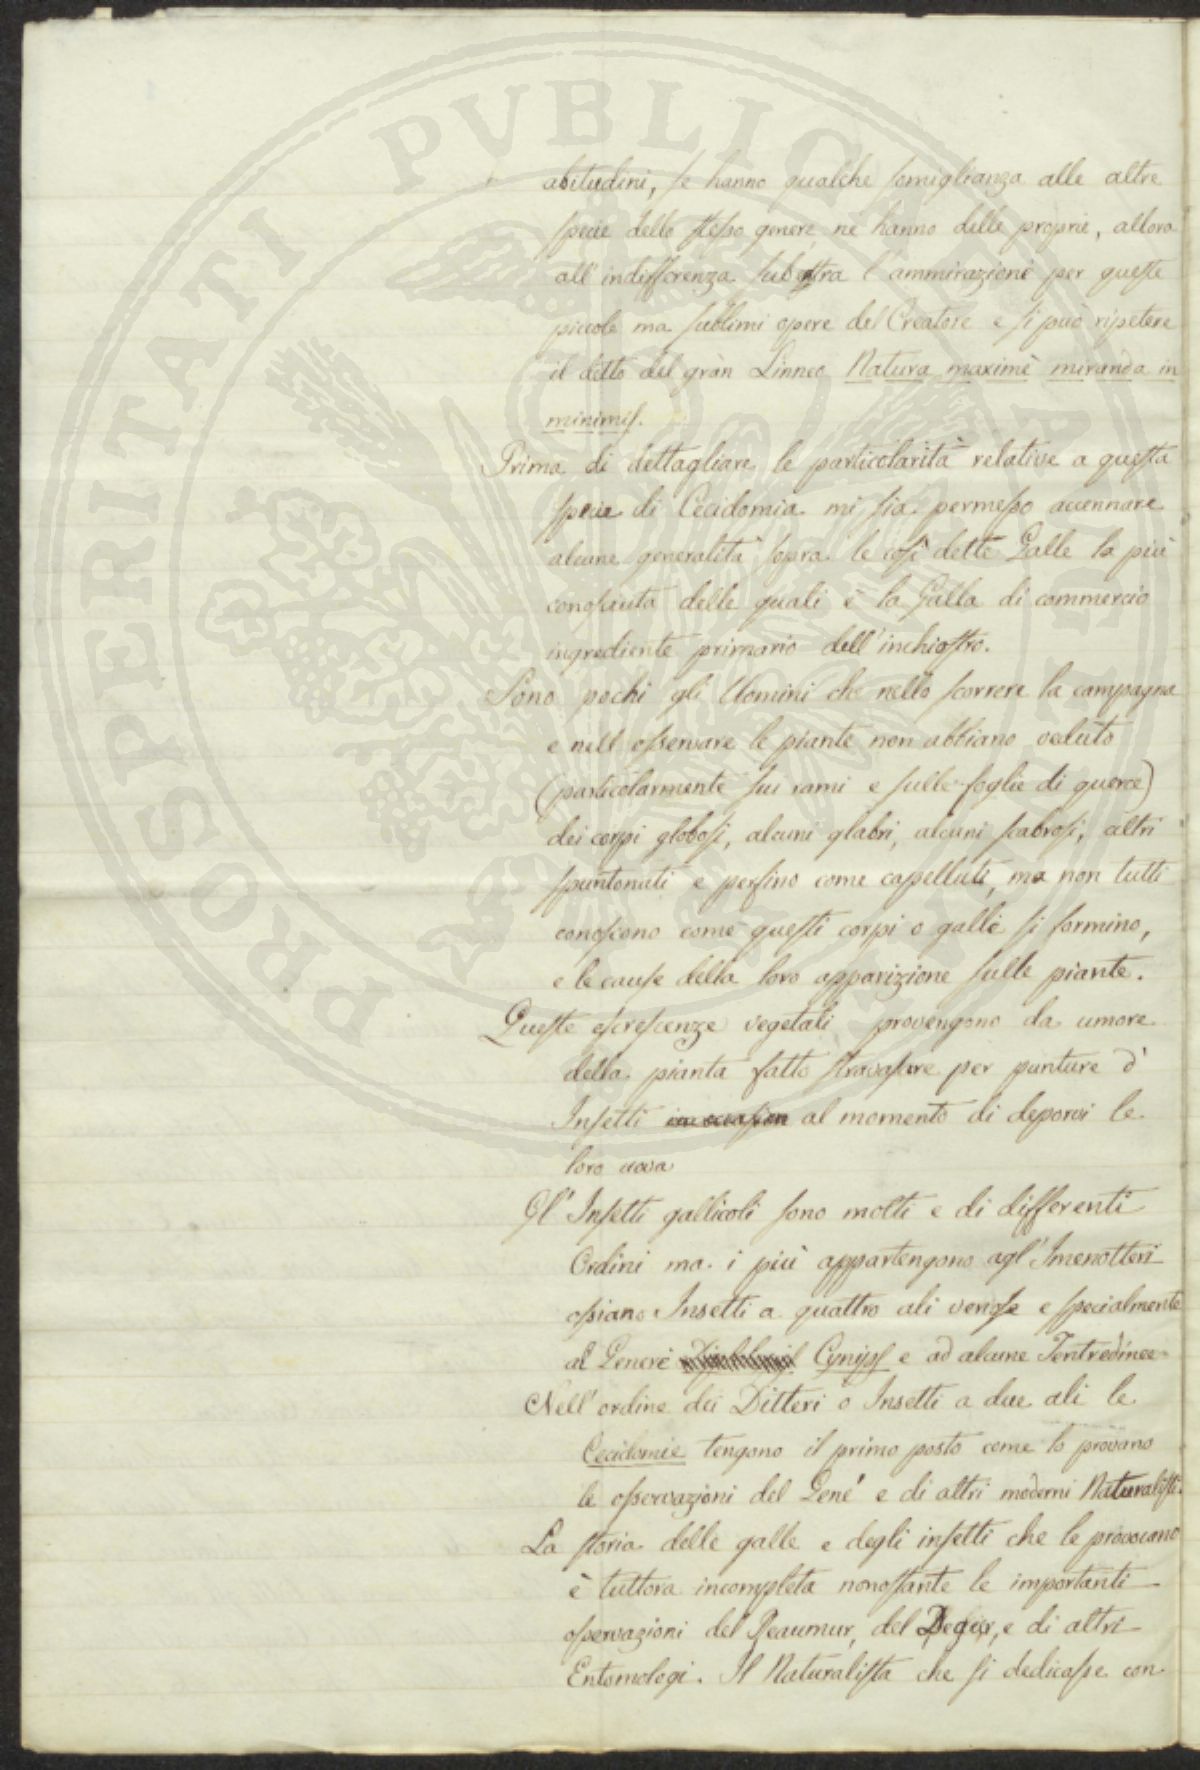 PROSPERITATI PVBLICAE
abitudini, se hanno qualche somiglianza alle altre
specie dello stesso genere, ne hanno delle proprie, allora
all'indifferenza subentra l'ammirazione per queste
piccole ma sublimi opere del Creatore e si può ripetere
il detto del gran Linneo Natura maximè miranda in
minimis.
Prima di dettagliare le particolarità relative a questa
specie di Cecidomia mi sia permesso accennare
alcune generalità sopra le così dette Galle la più
conosciuta delle quali è la Galla di commercio
ingrediente primario dell'inchiostro.
Sono pochi gli Uomini che nello scorrere la campagna
e nell'osservare le piante non abbiano veduto
(particolarmente sui rami e sulle foglie di querce)
dei corpi globosi, alcuni glabri, alcuni scabrosi, altri
spuntonati e persino come capelluti, ma non tutti
conoscono come questi corpi o galle si formino,
e le cause della loro apparizione sulle piante.
Queste escrescenze vegetali provengono da umore
della pianta fatto stravasare per punture d'
Insetti al momento di deporvi le
loro uova
Gl'Insetti gallicoli sono molti e di differenti
Ordini ma i più appartengono agl'Imenotteri
ossiano Insetti a quattro ali venose e specialmente
al Genere Cynips e ad alcune Tentredinee
Nell'ordine dei Ditteri o Insetti a due ali le
Cecidomie tengono il primo posto come lo provano
le osservazioni del Gené e di altri moderni Naturalisti.
La storia delle galle e degli insetti che le provocano
è tuttora incompleta nonostante le importanti
osservazioni del Reaumur, del Degeer, e di altri
Entomologi. Il Naturalista che si dedicasse con